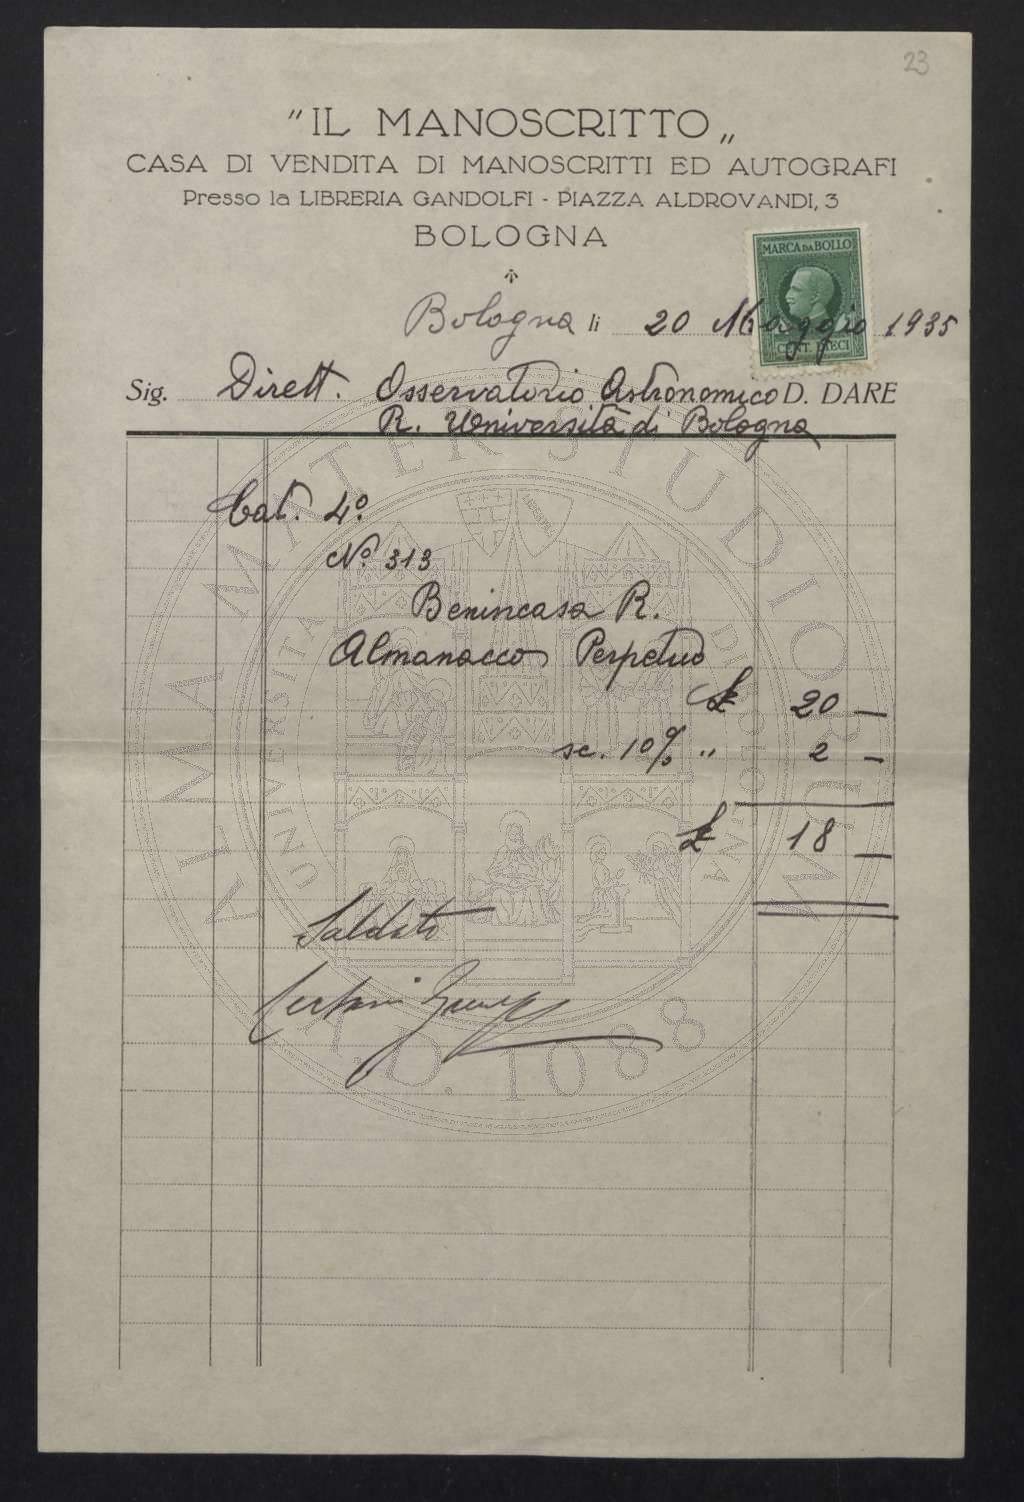 23
"IL MANOSCRITTO„
CASA DI VENDITA DI MANOSCRITTI ED AUTOGRAFI
Presso la LIBRERIA GANDOLFI - PIAZZA ALDROVANDI, 3
BOLOGNA
MARCA DA BOLLO
CENT. DIECI
Bologna li 20 Maggio 1935
Sig. Dirett. Osservatorio Astronomico D. DARE
R. Università di Bologna
Cat. 4º.
Nº. 313
Benincasa R.
Almanacco Perpetuo
£ 20 —
sc. 10% " 2 —
£ 18 —
Saldato
ALMA MATER STUDIORUM
UNIVERSITÀ DI BOLOGNA
A.D. 1088